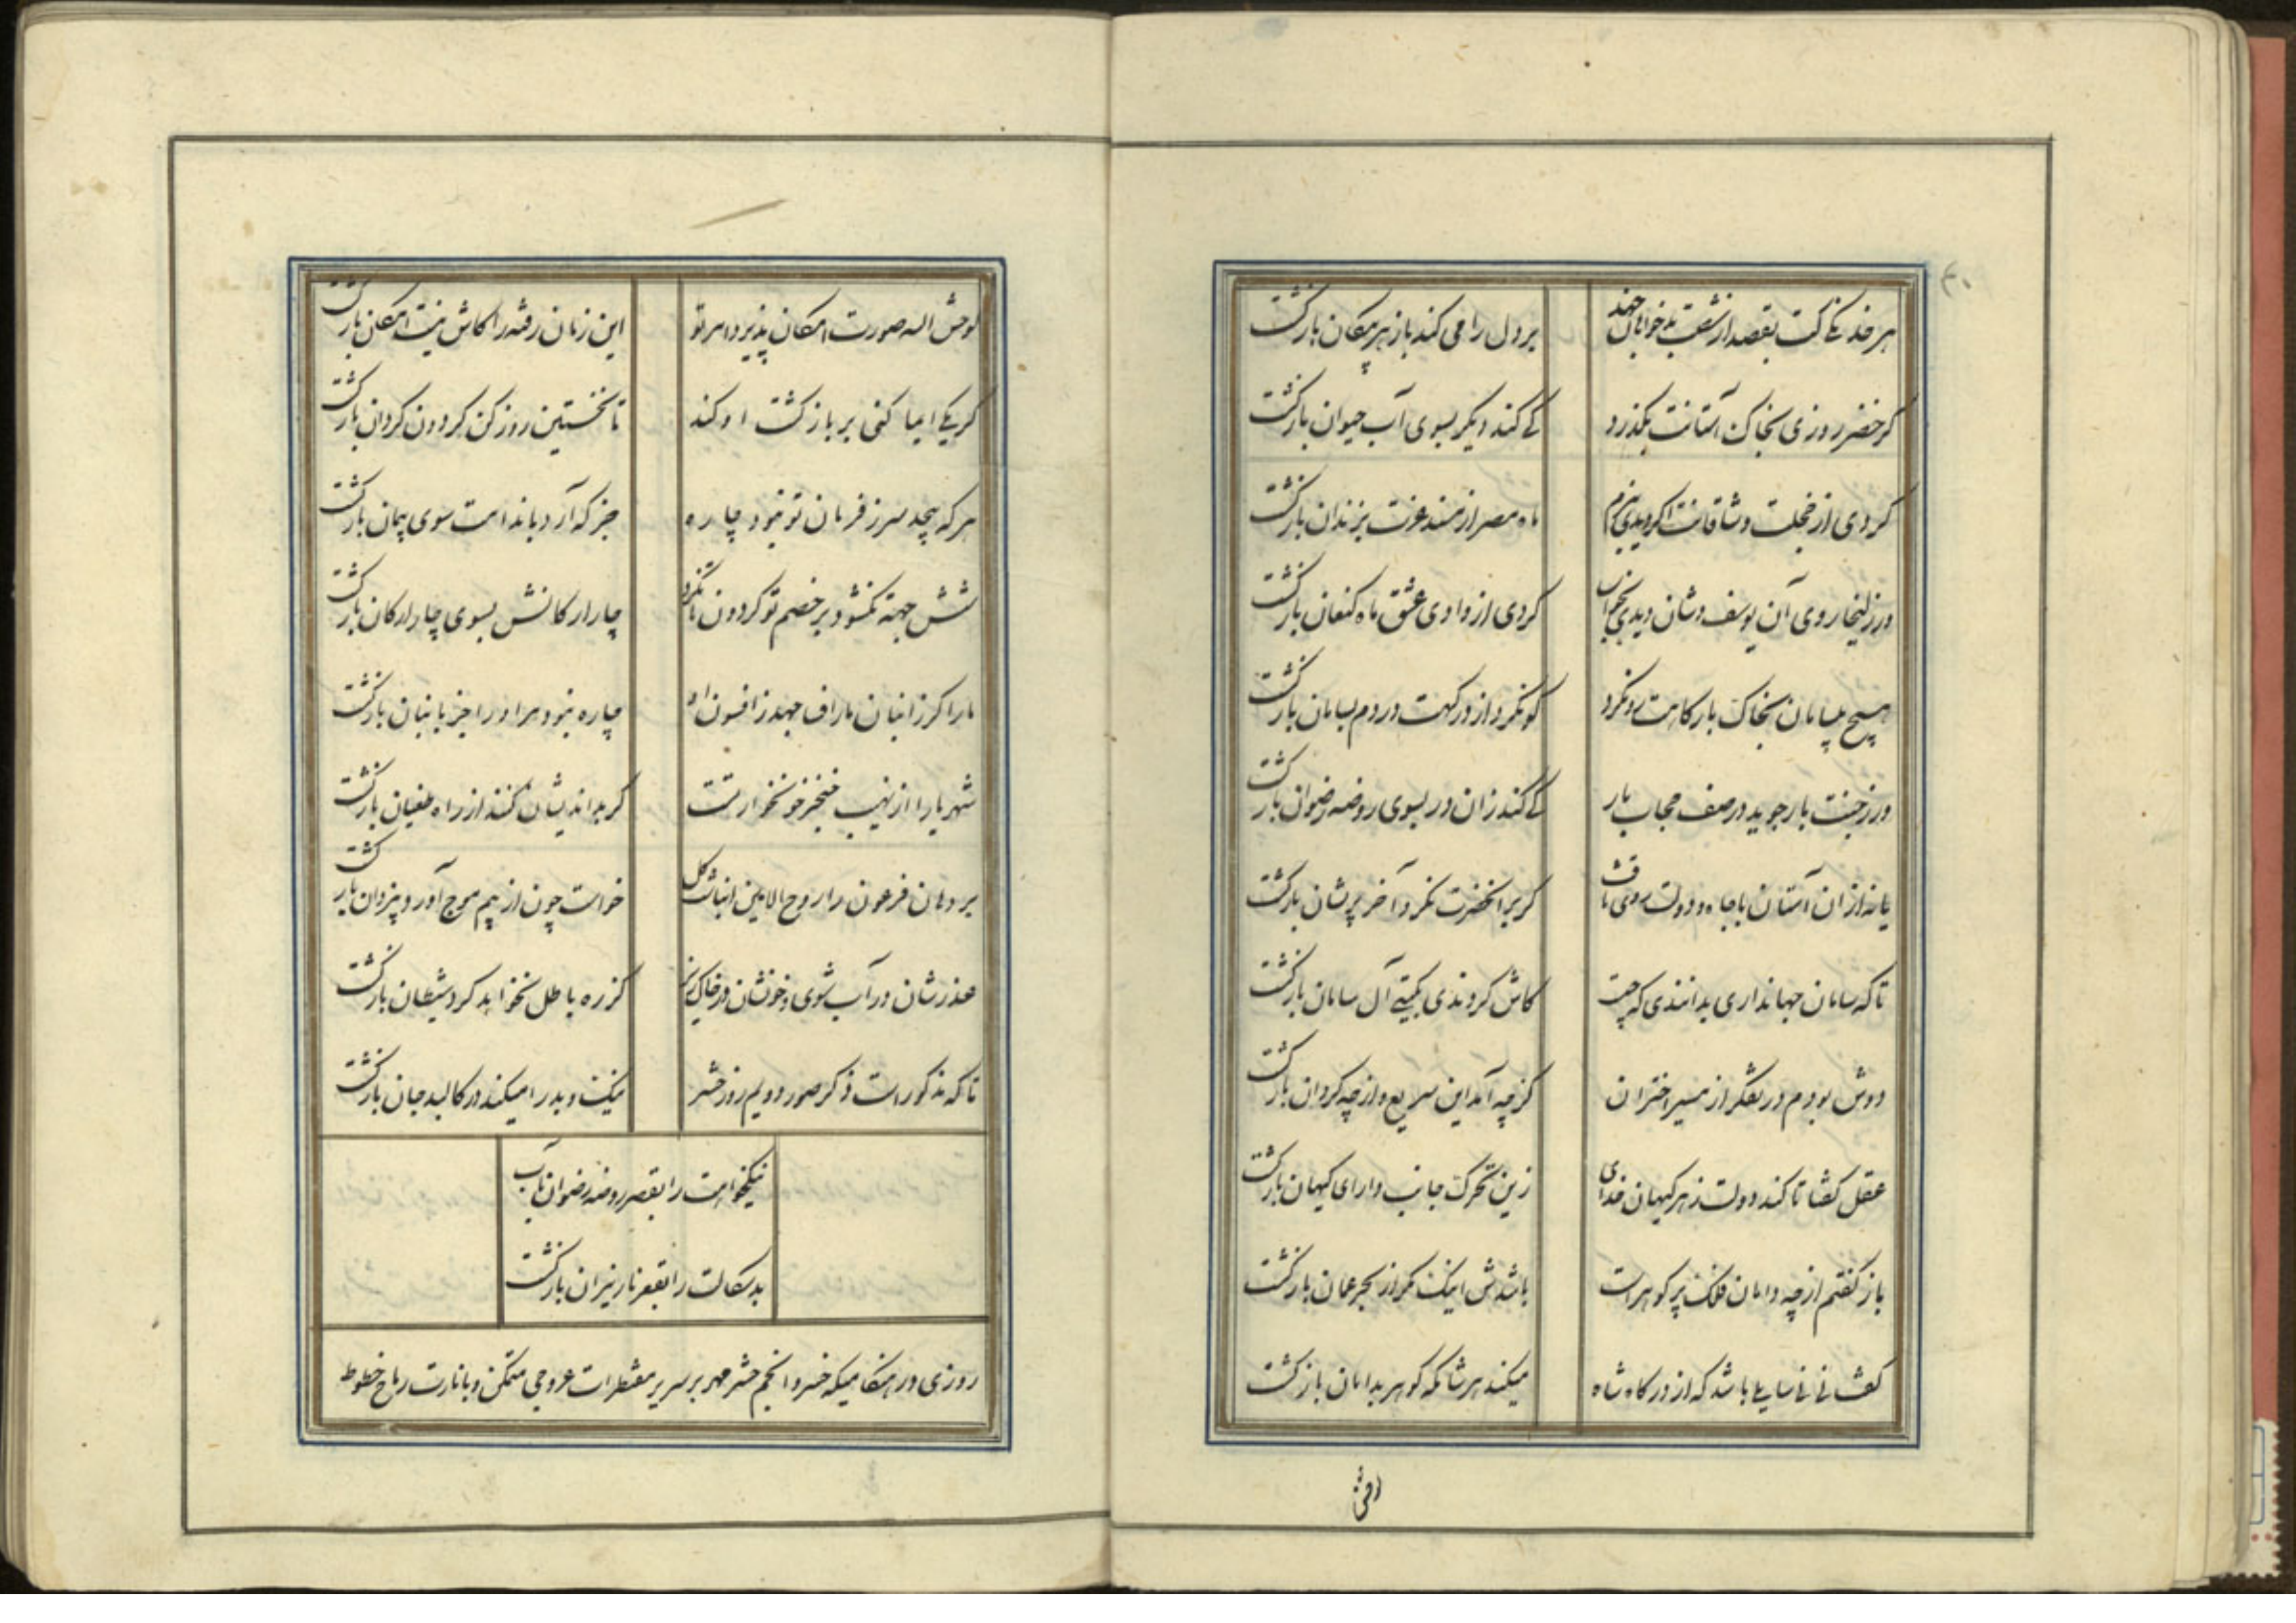 هر خدنگی کت بقصد از شصت بدخواهان جهد
بر دل رامی کند باز از هر پیکان بازگشت
گر خضر روزی بخاک آستانت بگذرد
کی کند دیگر بسوی آب حیوان بازگشت
کردی از خجلت وشاقانت اگر دیدی ببزم
ماه مصر از مسند عزت بزندان بازگشت
ور زلیخا روی آن یوسف وشان دیدی بخواب
کردی از وادی عشق ماه کنعان بازگشت
هیچ بیسامان بخاک بارگاهت رو نکرد
کو نکرد از درگهت در دم بسامان بازگشت
ور ز جنت بار جوید در صف حجاب بار
کی کند زان در بسوی روضه رضوان بازگشت
یافت از آن آستان با جاه و دولت روی
گر بر آنحضرت نکرد آخر پریشان بازگشت
تا که سامان جهانداری بدانندی که چیست
کاش کردندی بگیتی آل سامان بازگشت
دوش بودم در تفکر از مسیر اختران
کز چه آمد این سریع و از چه گردان بازگشت
عقل گفتا تا کند دولت ز هر کیهان خدای
زین تحرک جانب دارای کیهان بازگشت
باز گفتم از چه دامان فلک پر گوهر است
باشدش اینک مگر از بحر عمان بازگشت
گفت نی نی سایلی باشد که از درگاه شاه
میکند هر شامگه گوهر بدامان بازگشت
وحش الله صورت امکان پذیرد امر تو
این زمان رفته را کاش نیست امکان بازگشت
گر یکی ایما کنی بر بازگشت او کند
تا نخستین روز کن گردون گردان بازگشت
هر که پیچد سر ز فرمان تو نبود چاره
جز که آرد با ندامت سوی پیمان بازگشت
شش جهت نگشود بر خصم تو گردون تا نکرد
چار ارکانش بسوی چار ارکان بازگشت
مار اگر ز انبان مار جهد ز افسون او
چاره نبود مر او را جز بانبان بازگشت
شهریارا از نهیب خنجر خونخوار تست
گر بداندیشان کنند از راه طغیان بازگشت
بر دهان فرعون را روح الامین انباشت گل
خواست چون از بیم موج آورد یزدان بازگشت
عذرشان در آب شوی و خونشان در خاک ریز
کز ره باطل نخواهد کرد شیطان بازگشت
تا که مذکور است ذکر صور دویم روز حشر
نیک و بد را میکند در کالبد جان بازگشت
نیکخواهت را بقصر روضه رضوان مآب
بدسگالت را بقعر نار نیران بازگشت
روزی در هنگامیکه خسرو انجم حشر مهر بر سریر مقنطرات عروجی متمکن و باثارت رماح خطوط